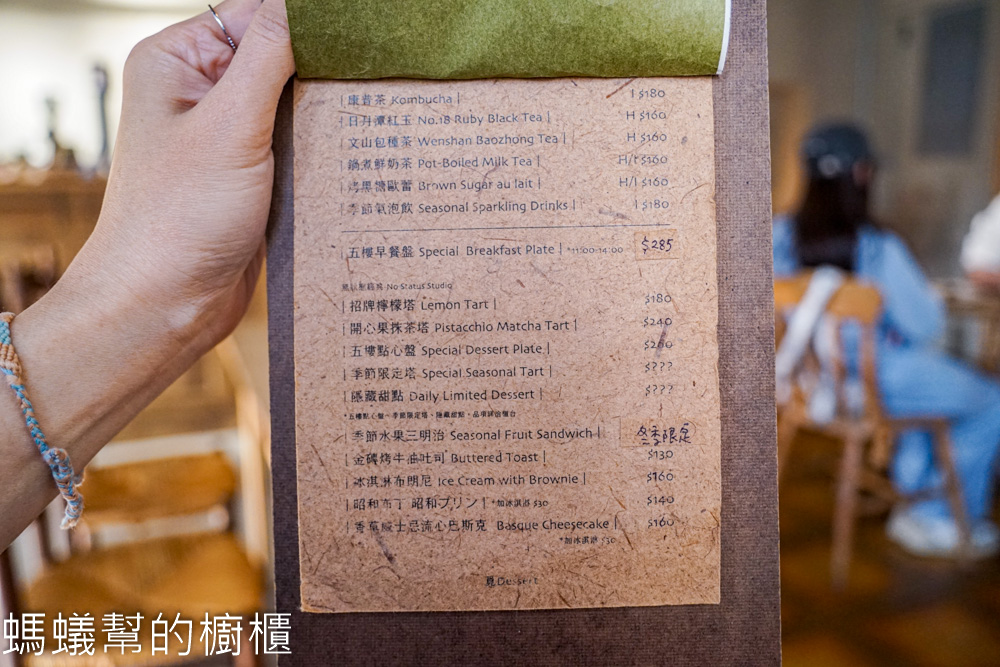 | 康普茶 Kombucha | I $180
| 日月潭紅玉 No.18 Ruby Black Tea | H $160
| 文山包種茶 Wenshan Baozhong Tea | H $160
| 鍋煮鮮奶茶 Pot-Boiled Milk Tea | H/I $160
| 烤黑糖歐蕾 Brown Sugar au lait | H/I $160
| 季節氣泡飲 Seasonal Sparkling Drinks | I $180
| 五樓早餐盤 Special Breakfast Plate | *11:00-14:00 $285
No Status Studio
| 招牌檸檬塔 Lemon Tart | $180
| 開心果抹茶塔 Pistacchio Matcha Tart | $240
| 五樓點心盤 Special Dessert Plate | $280
| 季節限定塔 Special Seasonal Tart | $???
| 隱藏甜點 Daily Limited Dessert | $???
*五樓點心盤、季節限定塔、隱藏甜點，品項詳洽櫃台
| 季節水果三明治 Seasonal Fruit Sandwich | 冬季限定
| 金磚烤牛油吐司 Buttered Toast | $130
| 冰淇淋布朗尼 Ice Cream with Brownie | $160
| 昭和布丁 昭和プリン | *加冰淇淋 $30 $140
| 香草威士忌流心巴斯克 Basque Cheesecake | $160
*加冰淇淋 $30
覓Dessert
螞蟻幫的櫥櫃